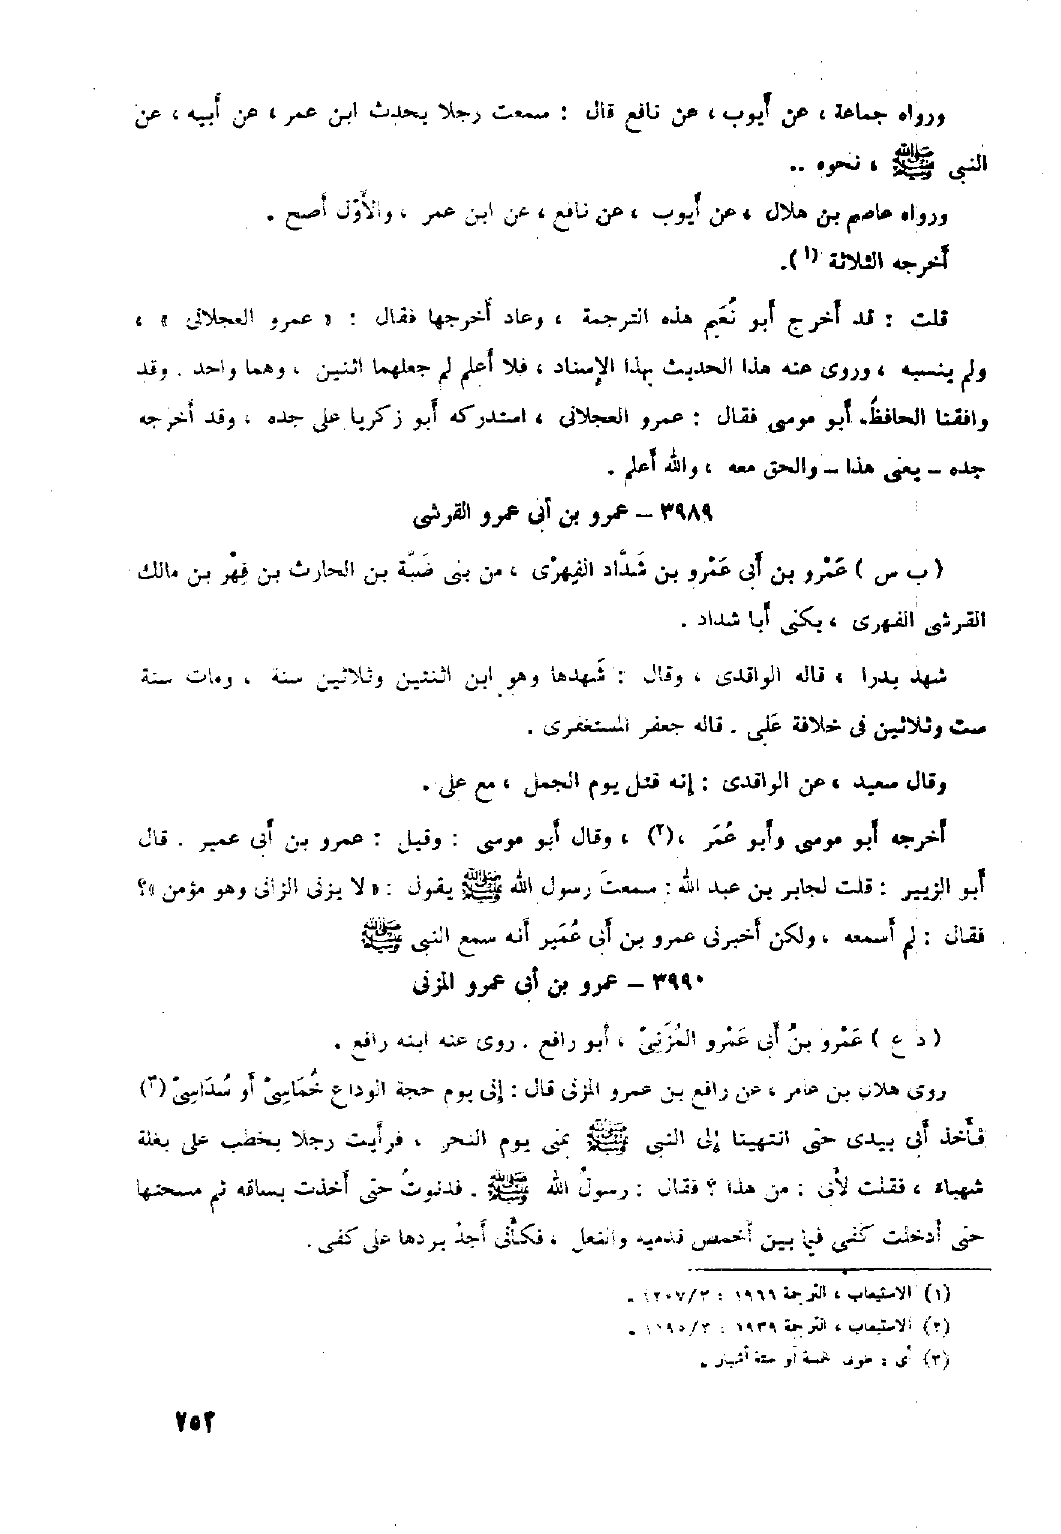 ورواه جماعة ، عن أيوب ، عن نافع قال : سمعت رجلا يحدث ابن عمر ، عن أبيه ، عن
النبى ﷺ ، نحوه ..
ورواه عاصم بن هلال ، عن أيوب ، عن نافع ، عن ابن عمر ، والأوّل أصح .
أخرجه الثلاثة (١).
قلت : قد أخرج أبو نُعَيم هذه الترجمة ، وعاد أخرجها فقال : « عمرو العجلانى » ،
ولم ينسبه ، وروى عنه هذا الحديث بهذا الإسناد ، فلا أعلم لم جعلهما اثنين ، وهما واحد . وقد
وافقنا الحافظُ أبو موسى فقال : عمرو العجلانى ، استدركه أبو زكريا على جده ، وقد أخرجه
جده – يعنى هذا – والحق معه ، والله أعلم .
٣٩٨٩ – عمرو بن أبى عمرو القرشى
( ب س ) عَمْرو بن أبى عَمْرو بن شَدَّاد الفِهرْى ، من بنى ضَبَّة بن الحارث بن فِهْر بن مالك
القرشى الفهرى ، يكنى أبا شداد .
شهد بدرا ، قاله الواقدى ، وقال : شَهدها وهو ابن اثنتين وثلاثين سنة ، ومات سنة
ست وثلاثين فى خلافة عَلى . قاله جعفر المستغفرى .
وقال سعيد ، عن الواقدى : إنه قتل يوم الجمل ، مع على .
أخرجه أبو موسى وأبو عُمَر ،(٢) ، وقال أبو موسى : وقيل : عمرو بن أبى عمير . قال
أبو الزبير : قلت لجابر بن عبد الله : سمعتَ رسول الله ﷺ يقول : « لا يزنى الزانى وهو مؤمن »؟
فقال : لم أسمعه ، ولكن أخبرنى عمرو بن أبى عُمَير أنه سمع النبى ﷺ
٣٩٩٠ – عمرو بن أبى عمرو المزنى
( د ع ) عَمْرو بنُ أبى عَمْرو المُزَنِىّ ، أبو رافع . روى عنه ابنه رافع .
روى هلال بن عامر ، عن رافع بن عمرو المزنى قال : إنى يوم حجة الوداع خُمَاسِىّ أو سُدَاسِىّ (٣)
فأخذ أبى بيدى حتى انتهينا إلى النبى ﷺ بمنى يوم النحر ، فرأيت رجلا يخطب على بغلة
شهباء ، فقلت لأبى : من هذا ؟ فقال : رسولُ الله ﷺ . فدنوتُ حتى أخذت بساقه ثم مسحتها
حتى أدخلت كفى فيما بين أخمص قدميه والنعل ، فكأنى أجدُ بردها على كفى .
(١) الاستيعاب ، الترجمة ١٩٦٩ : ١٢٠٧/٣ .
(٢) الاستيعاب ، الترجمة ١٩٣٩ : ١١٩٥/٣ .
(٣) أى : طوله خمسة أو ستة أشبار .
٧٥٢